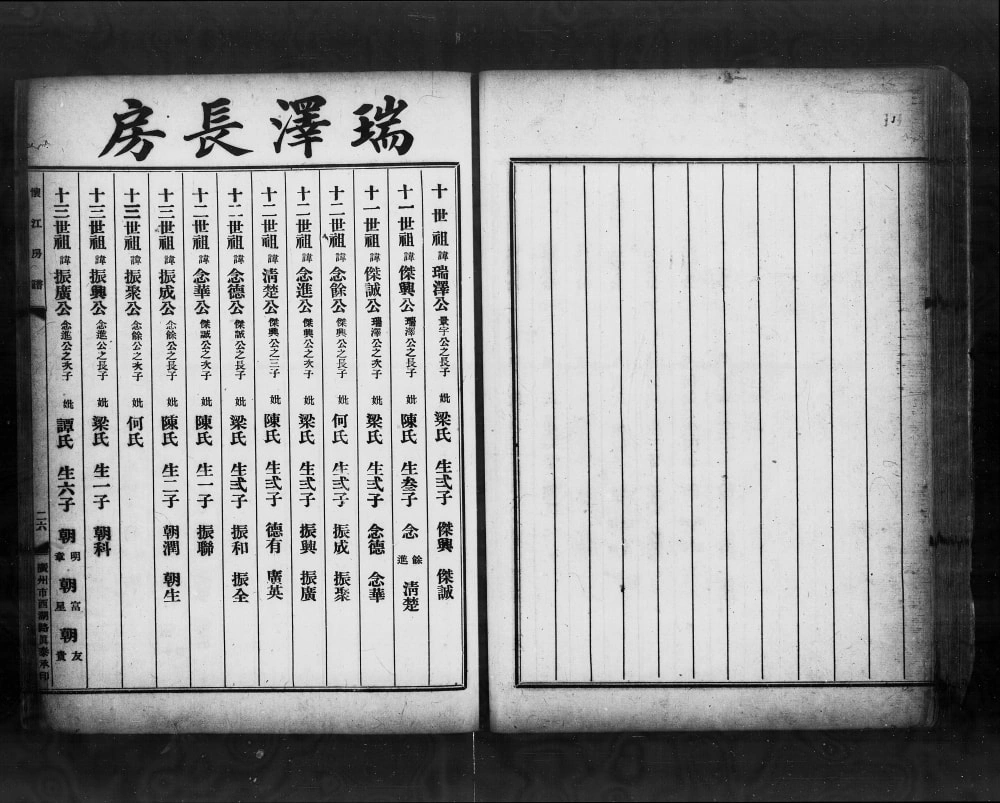 瑞澤長房
十世祖諱瑞澤公景宇公之長子妣梁氏生弍子傑興傑誠
十一世祖諱傑興公瑞澤公之長子妣陳氏生叁子念餘進清楚
十一世祖諱傑誠公瑞澤公之次子妣梁氏生弍子念德念華
十二世祖諱念餘公傑興公之長子妣何氏生弍子振成振聚
十二世祖諱念進公傑興公之次子妣梁氏生弍子振興振廣
十二世祖諱清楚公傑興公之三子妣陳氏生弍子德有廣英
十二世祖諱念德公傑誠公之長子妣梁氏生弍子振和振全
十二世祖諱念華公傑誠公之次子妣陳氏生一子振聯
十三世祖諱振成公念餘公之長子妣陳氏生二子朝潤朝生
十三世祖諱振聚公念餘公之次子妣何氏
十三世祖諱振興公念進公之長子妣梁氏生一子朝科
十三世祖諱振廣公念進公之次子妣譚氏生六子朝明章朝富星朝友貴
懷江房譜
二六
廣州市西湖路
承印